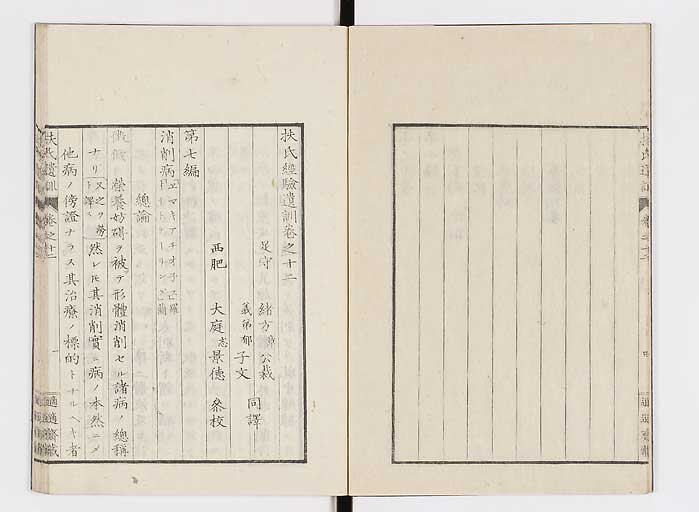 扶氏遺訓
扶氏經驗遺訓卷之十二
足守 緒方章公裁
義弟郁子文 同譯
西肥 大庭忞景德 參校
第七編
消削病
總論
徴候 榮養妨碍ヲ被テ形體消削セル諸病ノ總稱
ナリ 又之ヲ勞ト譯ス 然レㇳモ其消削實ニ病ノ本然ニメ
他病ノ傍證ナラス其治療ノ標的トナルヘキ者
扶氏遺訓 卷之十二 一 適適齋藏